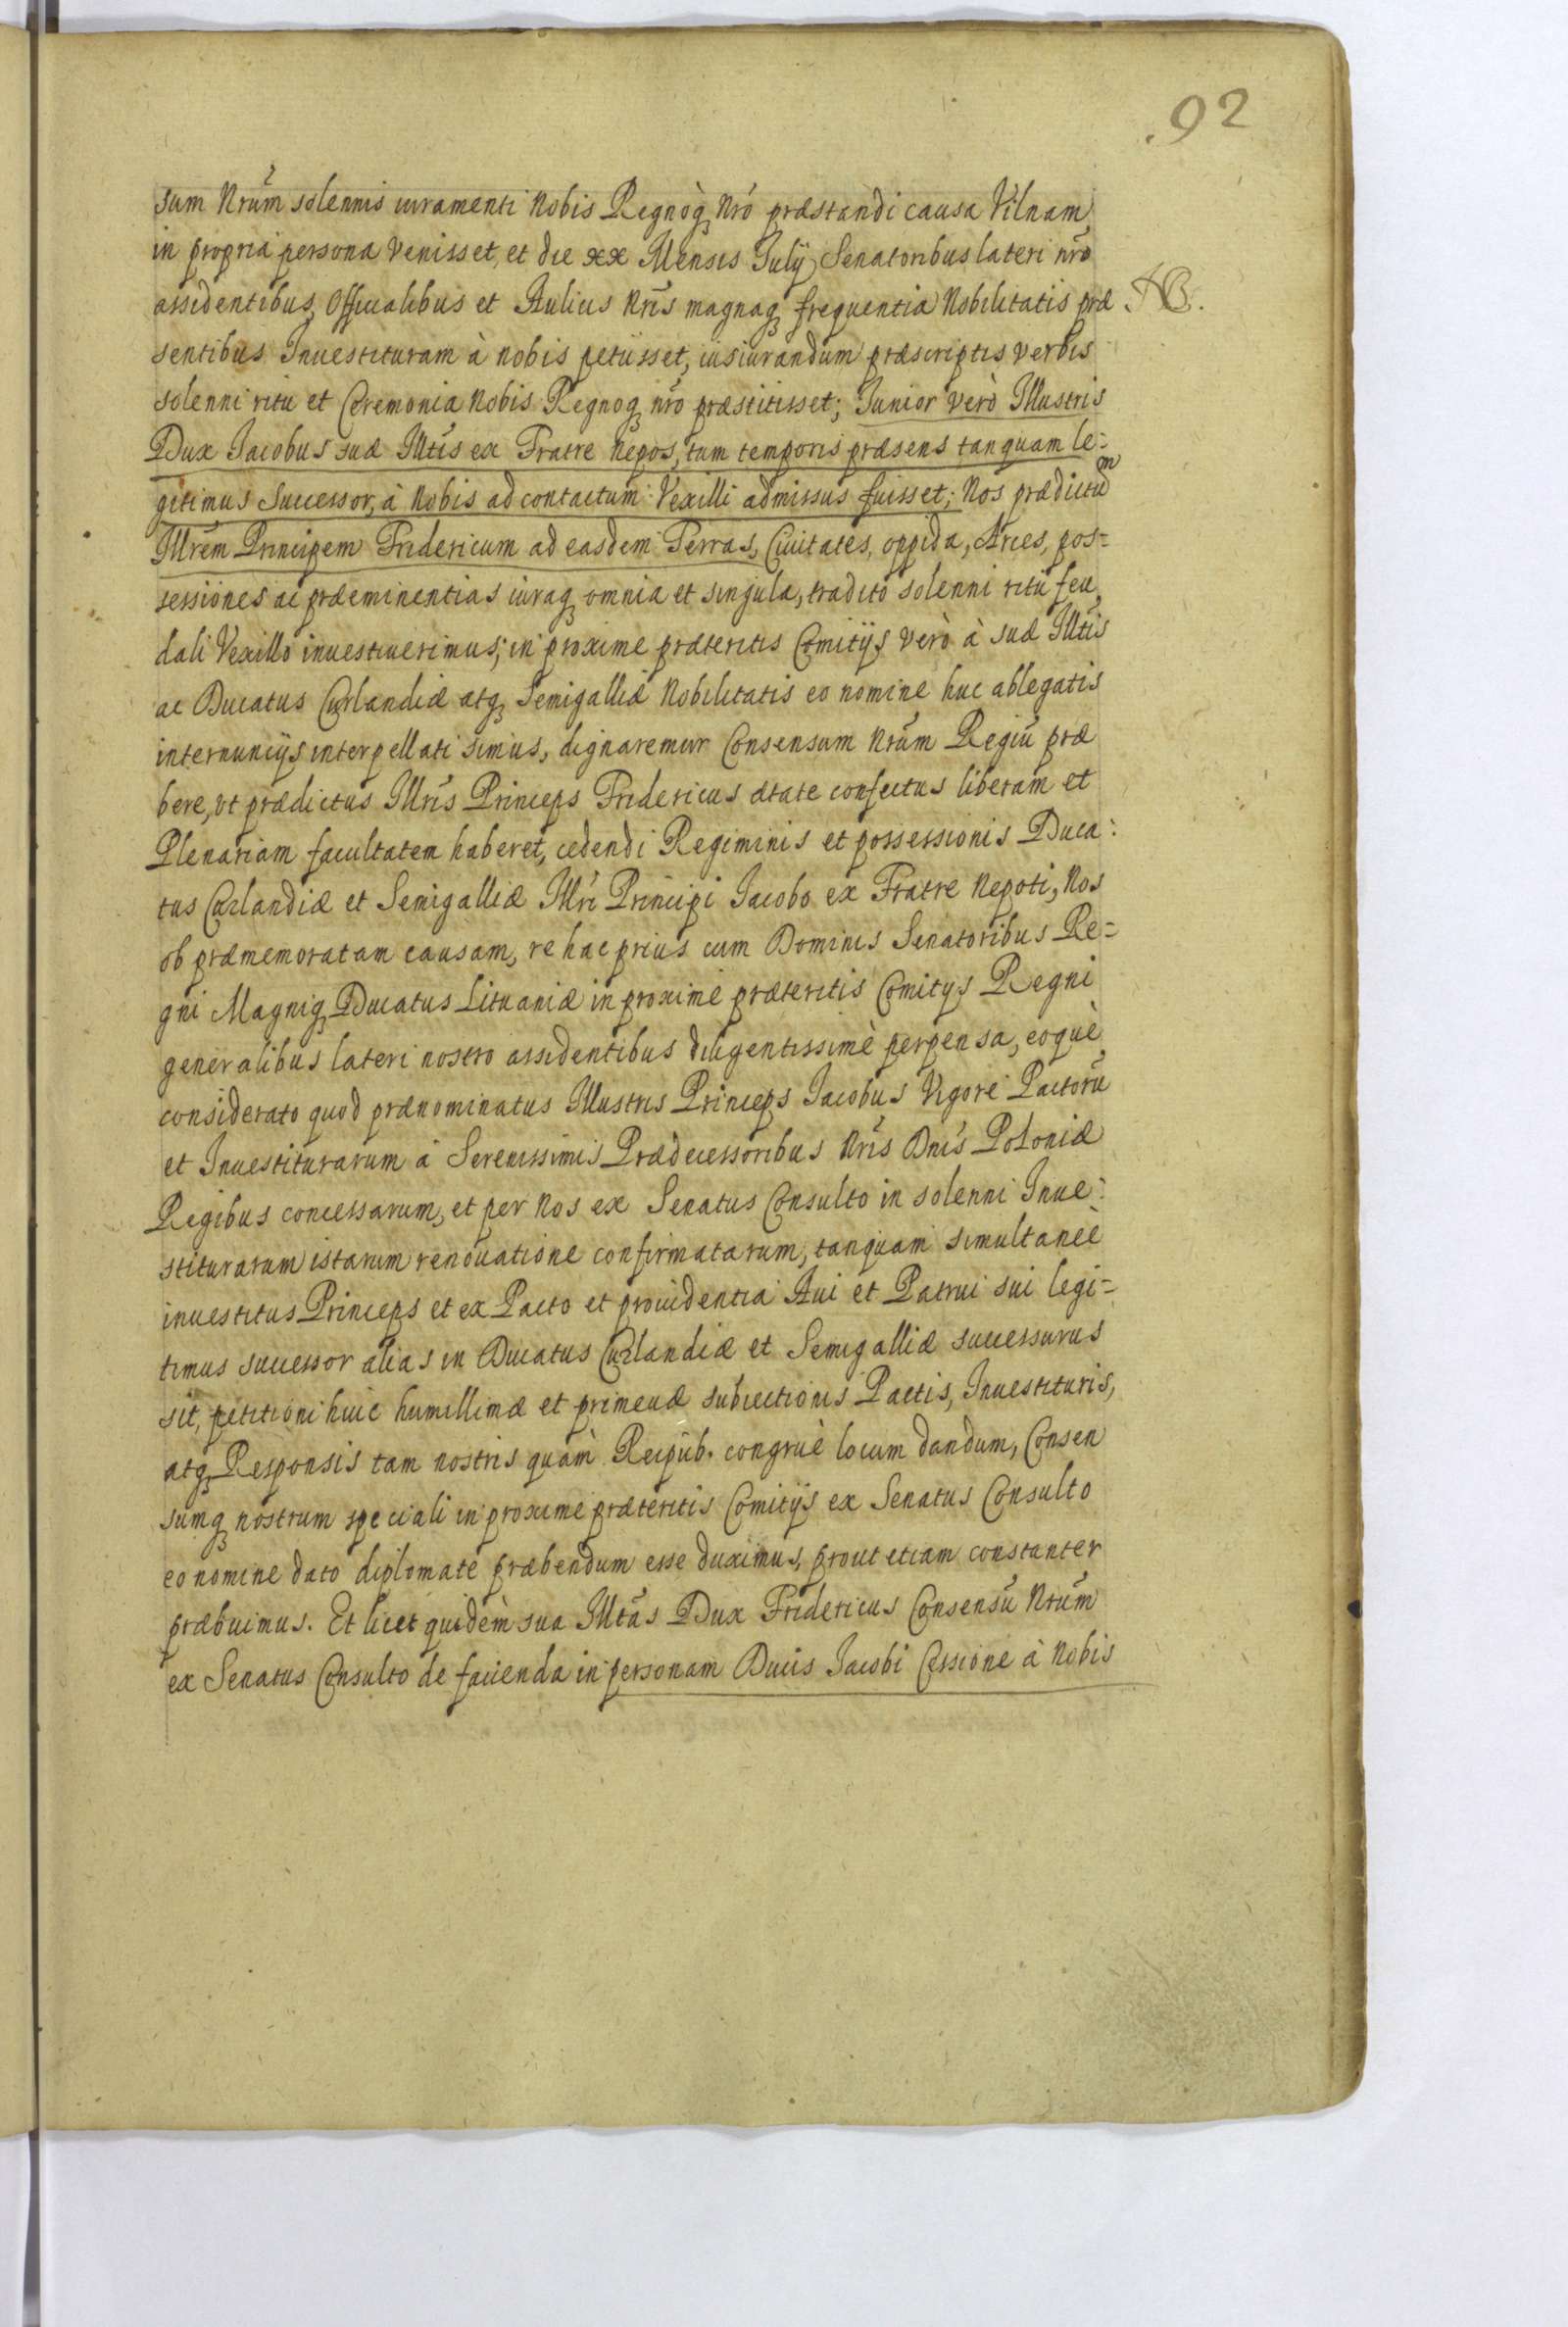 92
sum Nrũm solennis iuramenti Nobis Regnoq̀ꝫ Nrõ præstandi causa Vilnam
in propria persona venisset, et die xx Mensis Iulij Senatoribus lateri nrõ
assidentibus, Officialibus et Aulicis Nrĩs magnaqꝫ frequentia Nobilitatis præ
NB.
sentibus Inuestituram à nobis petiisset, iusiurandum præscriptis verbis
solenni ritu et Ceremonia Nobis Regnoqꝫ nrõ præstitisset; Iunior verò Illustris
Dux Iacobus suæ Illtĩs ex Fratre Nepos, tum temporis præsens tanquam le=
gitimus Successor, à Nobis ad contactum Vexilli admissus fuisset; Nos prædictum
Illrẽm Principem Fridericum ad easdem Terras, Ciuitates, oppida, Arces, pos=
sessiones ac præeminentias iuraqꝫ omnia et singula, tradito solenni ritu feu,
dali Vexillo inuestiuerimus; in proxime præteritis Comitijs verò à suæ Illtĩs
ac Ducatus Curlandiæ atqꝫ Semigalliæ Nobilitatis eo nomine huc ablegatis
internuncijs interpellati simus, dignaremur Consensum Nrũm Regiũ præ
bere, vt prædictus Illrĩs Princeps Fridericus ætate confectus liberam et
Plenariam facultatem haberet, cedendi Regiminis et possessionis Duca:
tus Curlandiæ et Semigalliæ Illrĩ Principi Iacobo ex Fratre Nepoti, Nos
ob præmemoratam causam, re hac prius cum Dominis Senatoribus Re=
gni Magniqꝫ Ducatus Lituaniæ in proximè præteritis Comitijs Regni
generalibus lateri nostro assidentibus diligentissimè perpensa, eoquè
considerato quod prænominatus Illustris Princeps Iacobus Vigore Pactorũ
et Inuestiturarum à Serenissimis Prædecessoribus Nrĩs Dnĩs Poloniæ
Regibus concessarum, et per Nos ex Senatus Consulto in solenni Inue:
stiturarum istarum renouatione confirmatarum, tanquam simultaneè
inuestitus Princeps et ex Pacto et prouidentia Aui et Patrui sui legi=
timus successor alias in Ducatus Curlandiæ et Semigalliæ successurus
sit, petitioni huic humillimæ et primeuæ subiectionis Pactis, Inuestituris,
atqꝫ Responsis tam nostris quàm Reipub. congruè locum dandum, Consen
sumqꝫ nostrum speciali in proxime præteritis Comitijs ex Senatus Consulto
eo nomine dato diplomate præbendum esse duximus, prout etiam constanter
præbuimus. Et licet quidèm sua Illtãs Dux Fridericus Consensũ Nrũm
ex Senatus Consulto de facienda in personam Ducis Iacobi Cessione à Nobis